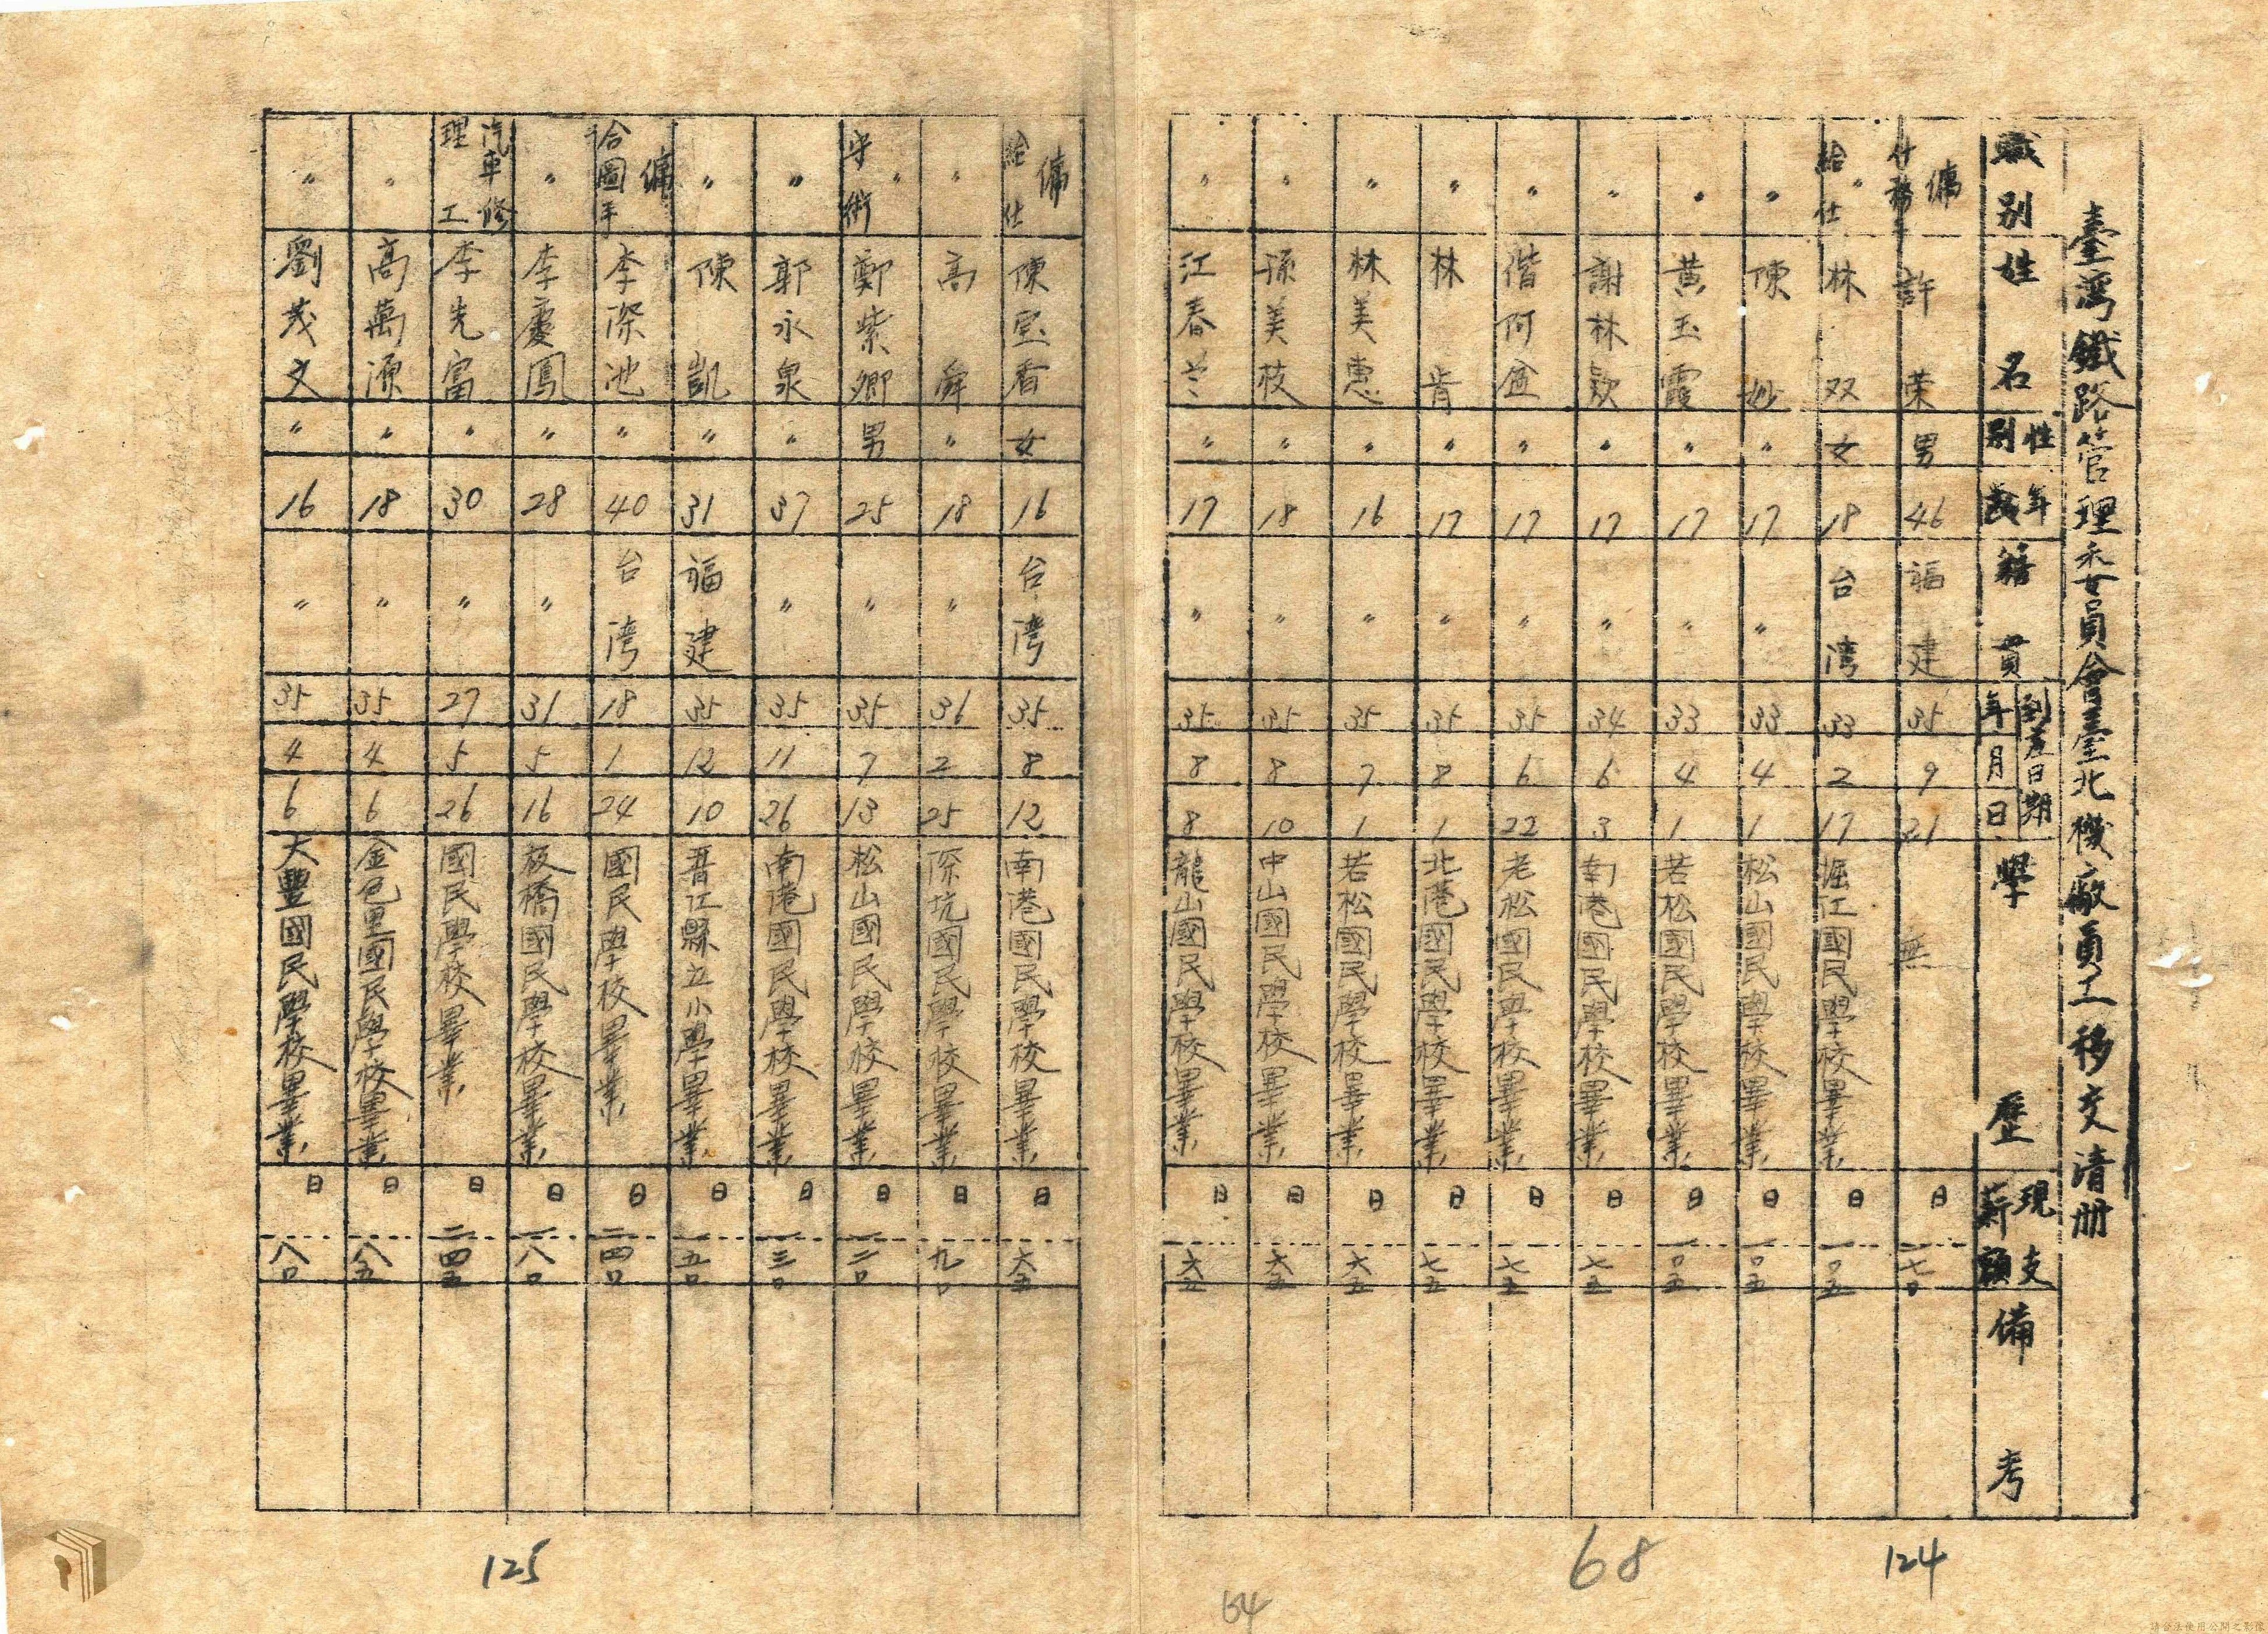 臺灣鐵路管理委員會臺北機廠員工移交清册
職別 姓名 性別 年歲 籍貫 到差日期 年月日 學歷 現支薪額 備考
傭 什務 許榮 男 46 福建 35 9 21 無 日 一七〇
〃 給仕 林双 女 18 台湾 33 2 17 堀江國民學校畢業 日 一〇五
〃 陳妙 〃 17 〃 33 4 1 松山國民學校畢業 日 一〇五
〃 黃玉霞 〃 17 〃 33 4 1 若松國民學校畢業 日 一〇五
〃 謝林欵 〃 17 〃 34 6 3 南港國民學校畢業 日 七五
〃 偕阿盆 〃 17 〃 35 6 22 老松國民學校畢業 日 七五
〃 林肯 〃 17 〃 35 8 1 北港國民學校畢業 日 七五
〃 林美惠 〃 16 〃 35 7 1 若松國民學校畢業 日 六五
〃 孫美枝 〃 18 〃 35 8 10 中山國民學校畢業 日 六五
〃 江春兰 〃 17 〃 35 8 8 龍山國民學校畢業 日 六五
傭 給仕 陳宝香 女 16 台湾 35 8 12 南港國民學校畢業 日 六五
〃 高舜 〃 18 〃 36 2 25 深坑國民學校畢業 日 九〇
〃 守衛 鄭紫卿 男 25 〃 35 7 13 松山國民學校畢業 日 一二〇
〃 郭永泉 〃 37 〃 35 11 26 南港國民學校畢業 日 一三〇
〃 陳凱 〃 31 福建 35 12 10 晋江縣立小學畢業 日 一五〇
傭 合圖手 李深池 〃 40 台湾 18 1 24 國民學校畢業 日 二四〇
〃 李慶鳳 〃 28 〃 31 5 16 板橋國民學校畢業 日 一八〇
汽車修理工 李先富 〃 30 〃 27 5 26 國民學校畢業 日 二四五
〃 高萬源 〃 18 〃 35 4 6 金包里國民學校畢業 日 八五
〃 劉茂文 〃 16 〃 35 4 6 大豐國民學校畢業 日 八〇
124
68
64
125